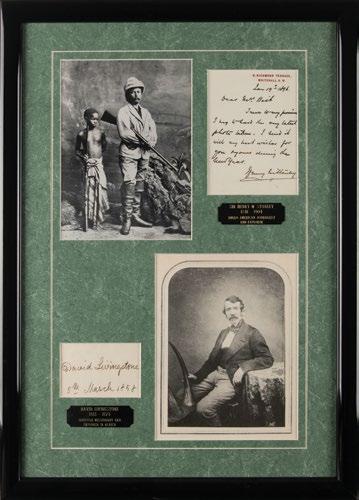 2, RICHMOND TERRACE,
WHITEHALL, S.W.
Jan 19th 1896
Dear Mrs
I my
I my to have my latest
photo taken. I send it
with my best wishes for
you during the
New Year.
Henry M Stanley
SIR HENRY M. STANLEY
1841 1904
ANGLO AMERICAN JOURNALIST
AND EXPLORER
David Livingstone
8th March 1858
DAVID LIVINGSTONE
1813 - 1873
SCOTTISH MISSIONARY AND
EXPLORER IN AFRICA